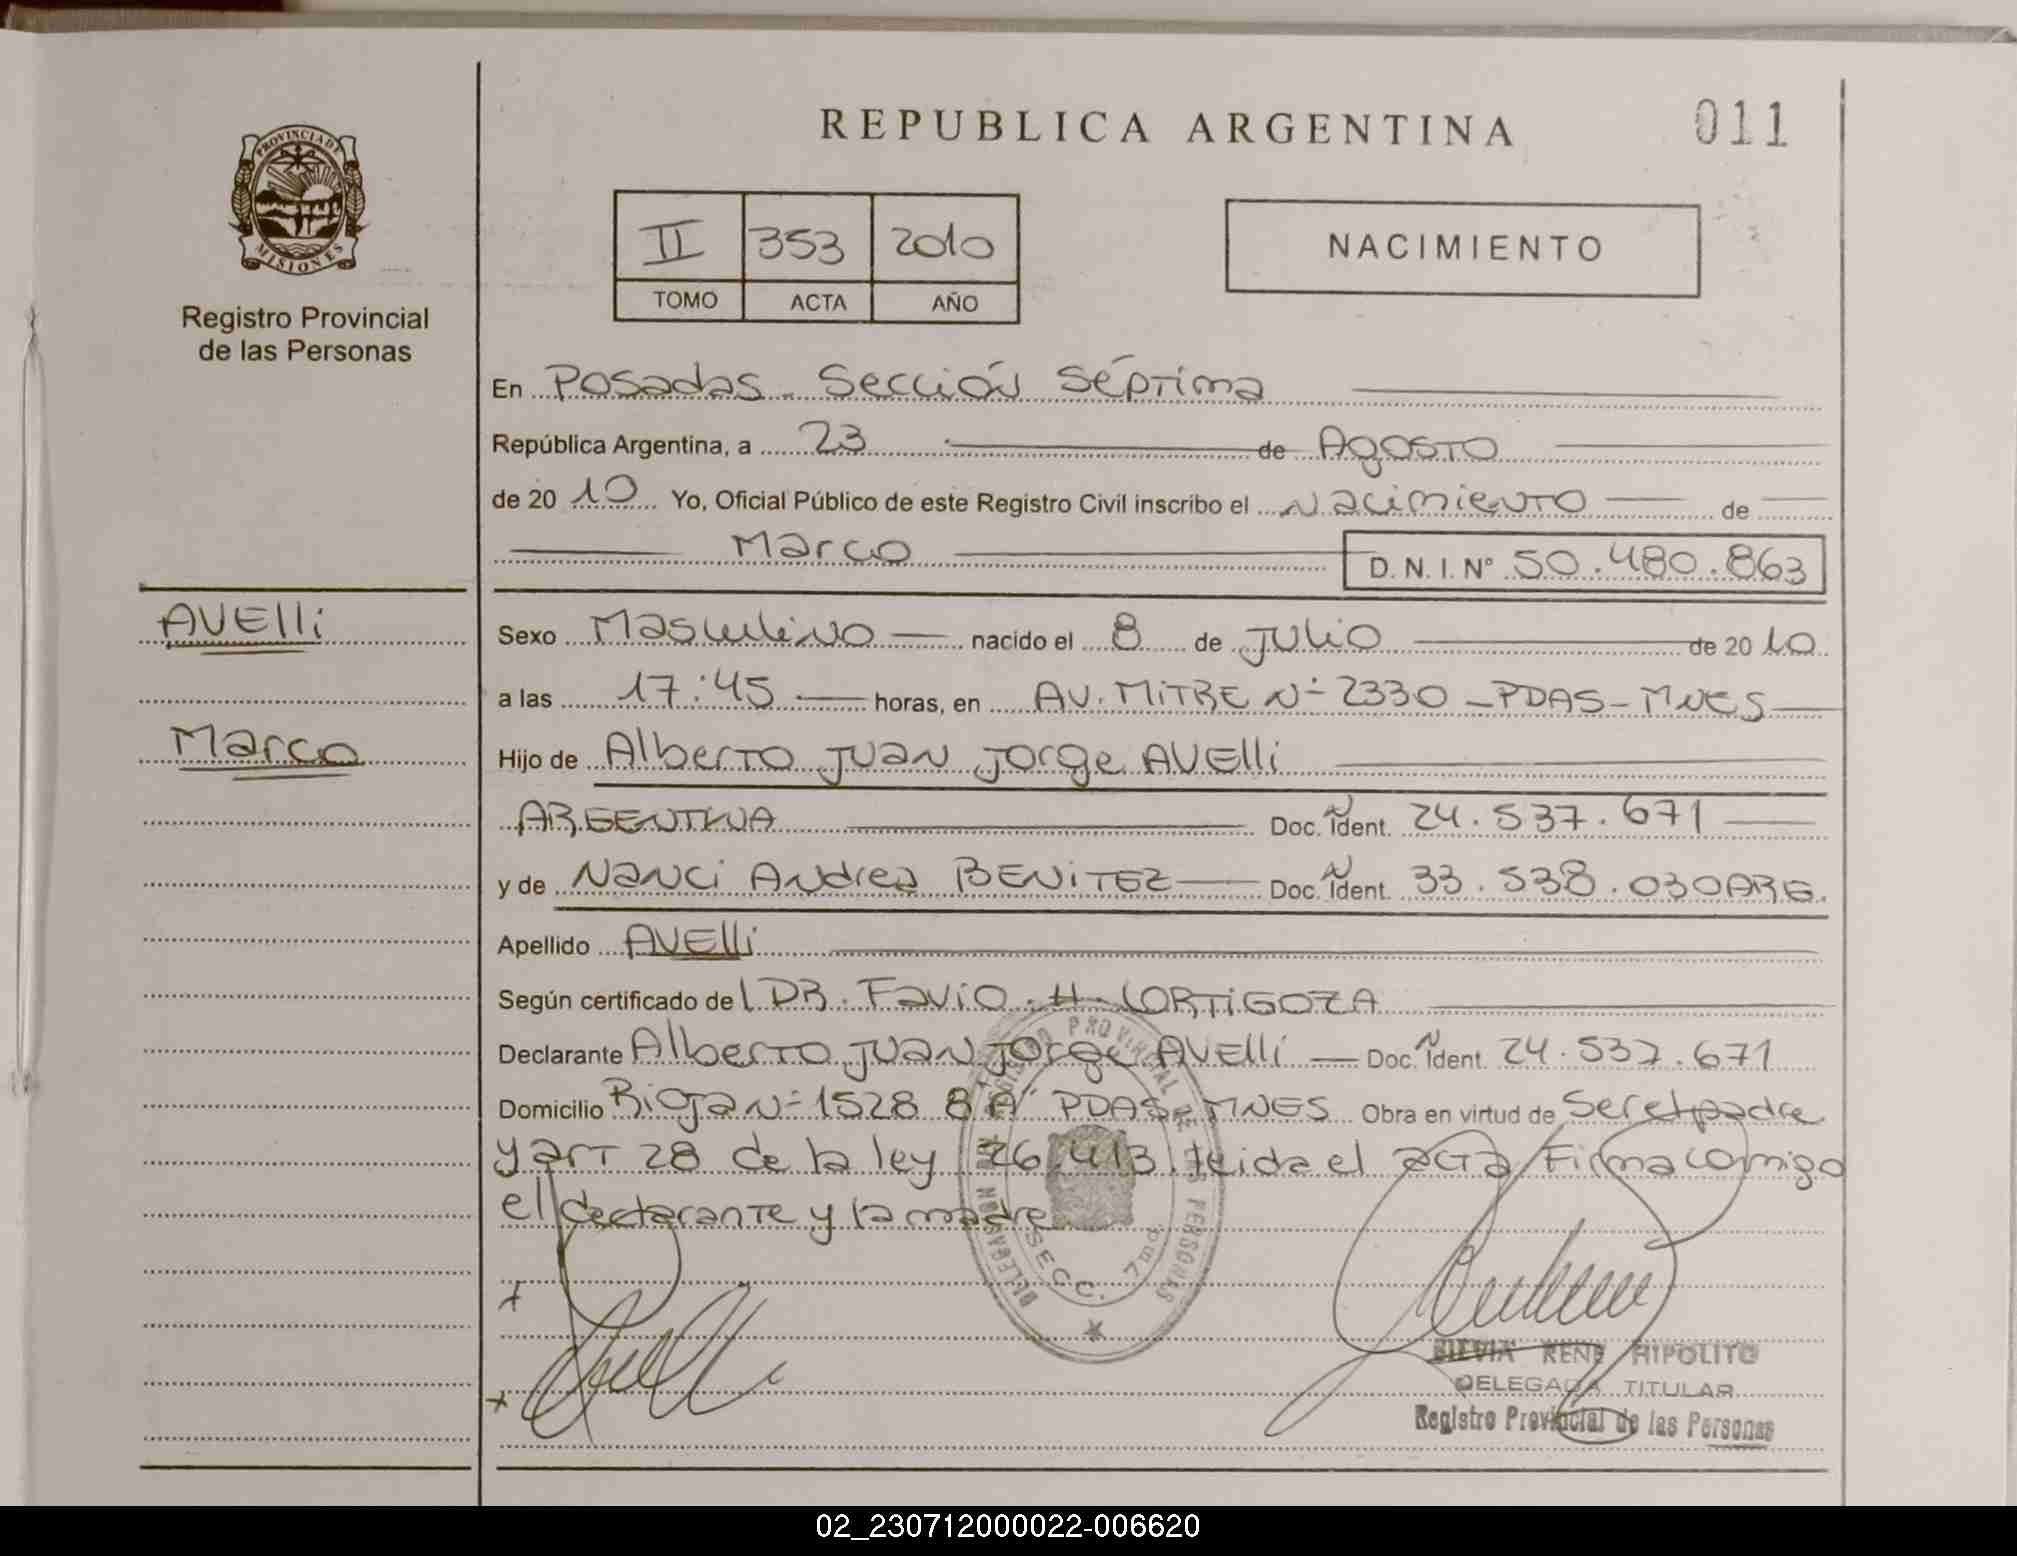 REPUBLICA ARGENTINA
011
PROVINCIA DE
MISIONES
Registro Provincial
de las Personas
II 353 2010
TOMO ACTA AÑO
NACIMIENTO
En Posadas - Sección Séptima
República Argentina, a 23 de Agosto
de 2010 Yo, Oficial Público de este Registro Civil inscribo el Nacimiento de
Marco D.N.I. Nº 50.480.863
AVElli
Marco
Sexo Masculino nacido el 8 de Julio de 2010
a las 17:45 horas, en AV. MITRE Nº 2330 - PDAS - MNES
Hijo de Alberto Juan Jorge AVElli
ARGENTINA Doc. Ident. 24.537.671
y de Nanci Andrea BENITEZ Doc. Ident. 33.538.030 ARG.
Apellido AVElli
Según certificado de DR. Favio H. LORTIGOZA
Declarante Alberto Juan Jorge AVElli Doc. Ident. 24.537.671
Domicilio Rioja Nº 1528 8 "A" PDAS - MNES Obra en virtud de Ser el padre
y art 28 de la ley 26.413 leida el acta Firma comigo
el declarante y la madre
REGISTRO PROVINCIAL DE LAS PERSONAS
DELEGACION
SECC. 7ma.
SILVIA RENE HIPOLITO
DELEGADA TITULAR
Registro Provincial de las Personas
02_230712000022-006620